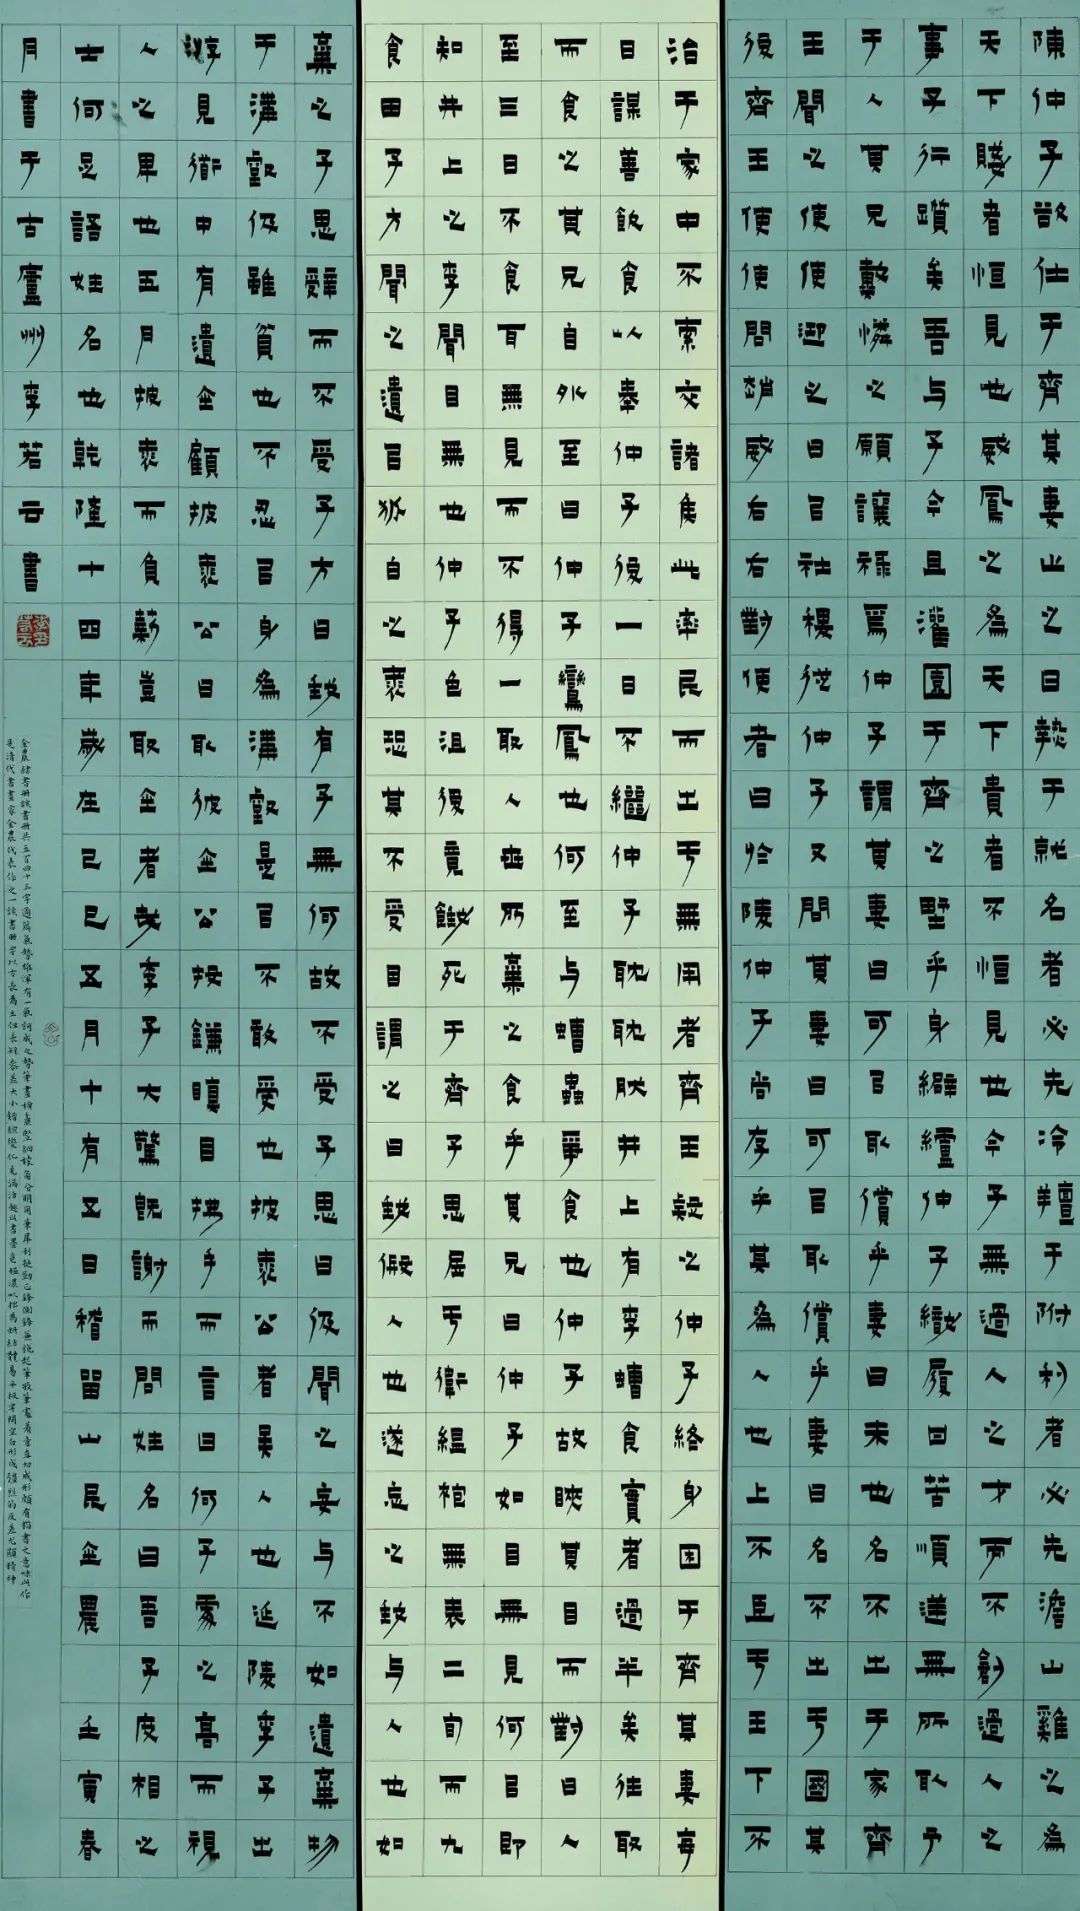 陳仲子辭仕于齊其妻止之曰熱于就名者必先冷羶于附利者必先澹山雞之為
天下賤者恒見也威鳳之為天下貴者不恒見也今子無過人之才而不創過人之
事子行躓矣吾与子今且灌園于齊之野乎身繲纑仲子織履曰苦順遂無所取予
于人其兄戴憐之願讓祿焉仲子謂其妻曰可以取償乎妻曰未也名不出于家齊
王聞之使使迎之曰以社稷從仲子又問其妻曰可以取償乎妻曰名不出于國其
後齊王使使問趙威右右對使者曰於陵仲子尚存乎其為人也上不臣于王下不
治于家中不索交諸侯此率民而出于無用者齊王疑之仲子終身困于齊其妻每
日謀善飯食以奉仲子後一日不繼仲子耽耽䀹井上有李螬食實者過半矣往取
而食之其兄自外至曰仲子鸞鳳也何至与螬蟲爭食也仲子故䀹其目而對曰人
至三日不食耳無見而不得一取人世所棄之食乎其兄曰仲子如目無見何以即
知井上之李聞目無也仲子色沮後竟餓死于齊子思居于衛縕袍無表二旬而九
食田子方聞之遺以狐白之裘恐其不受因謂之曰我假人也遂忘之我与人也如
棄之子思辭而不受子方曰我有子無何故不受子思曰伋聞之妄与不如遺棄物
于溝壑伋雖貧也不忍以身為溝壑是以不敢受也披裘公者吳人也延陵季子出
游見衜中有遺金顧披裘公曰取彼金公投鐮瞋目拂手而言曰何子處之高而視
人之卑也五月披裘而負薪豈取金者哉季子大驚既謝而問姓名曰吾子皮相之
士何足語姓名也乾隆十四年歲在己巳五月十有五日稽留山民金農 壬寅春
月書于古廬州李若云書
金農隸書册該書册共五百四十三字通篇氣勢雄渾有一氣呵成之勢
是清代書畫家金農代表作之一該書册字以方長為主